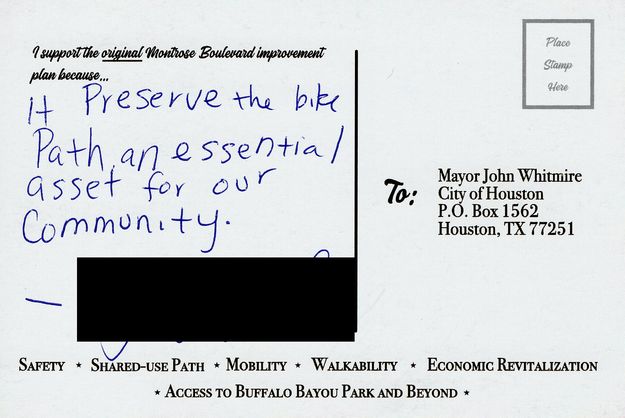 I support the original Montrose Boulevard improvement
plan because...
It Preserve the bike
Path, an essential
asset for our
Community.
Place
Stamp
Here
To:
Mayor John Whitmire
City of Houston
P.O. Box 1562
Houston, TX 77251
Safety ⋆ Shared-use Path ⋆ Mobility ⋆ Walkability ⋆ Economic Revitalization
⋆ Access to Buffalo Bayou Park and Beyond ⋆